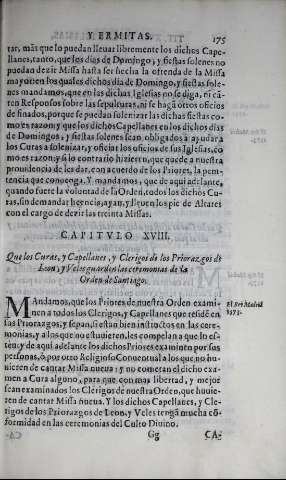 Y ERMITAS. 175
tar, mas que lo puedan lleuar libremente los dichos Cape-
llanes, tanto, que los dias de Domingo, y fiestas solenes no
puedan dezir Missa hasta ser hecha la ofrenda de la Missa
mayor en los quales dichos dia de Domingo, y fiestas sole-
nes mandamos, que en las dichas Iglesias no se diga, ni cã-
ten Responsos sobre las sepulturas, ni se hagã otros oficios
de finados, porque se puedan solenizar las dichas fiestas co-
mo es razon; y que los dichos Capellanes en los dichos dias
de Domingos, y fiestas solenes sean obligados a ayudar a
los Curas a solenizar, y oficiar los oficios de sus Iglesias, co
mo es razon; y si lo contrario hizieren, que quede a nuestra
prouidencia de les dar, con acuerdo de los Priores, la peni-
tencia que conuenga. Y mandamos, que de aqui adelante,
quando fuere la voluntad de la Orden, todos los dichos Cu-
ras, sin demandar licencia, ayan, y lleuen los pie de Altares
con el cargo de dezir las treinta Missas.
CAPITVLO XVIII.
Que los Curas, y Capellanes, y Clerigos de los Priorazgos de
Leon, y Veles guarden las ceremonias de la
Orden de Santiago.
MAndamos, que los Priores de nuestra Orden exami-
nen a todos los Clerigos, y Capellanes que residẽ en
los Priorazgos, y sepan, si estan bien instructos en las cere-
monias, y a los que no estuuieren, les compelan a que lo es-
tẽn: y de aqui adelante los dichos Priores examinen por sus
personas, ò por otro Religioso Conuentual a los que no hu-
uieren de cantar Missa nueua: y no cometan el dicho exa-
men a Cura alguno, para que con mas libertad, y mejor
sean examinados los Clerigos de nuestra Orden, que huuie-
ren de cantar Missa ñueua. Y los dichos Capellanes, y Cle-
rigos de los Priorazgos de Leon, y Veles tengã mucha cõ-
formidad en las ceremonias del Culto Diuino.
Gg CA-